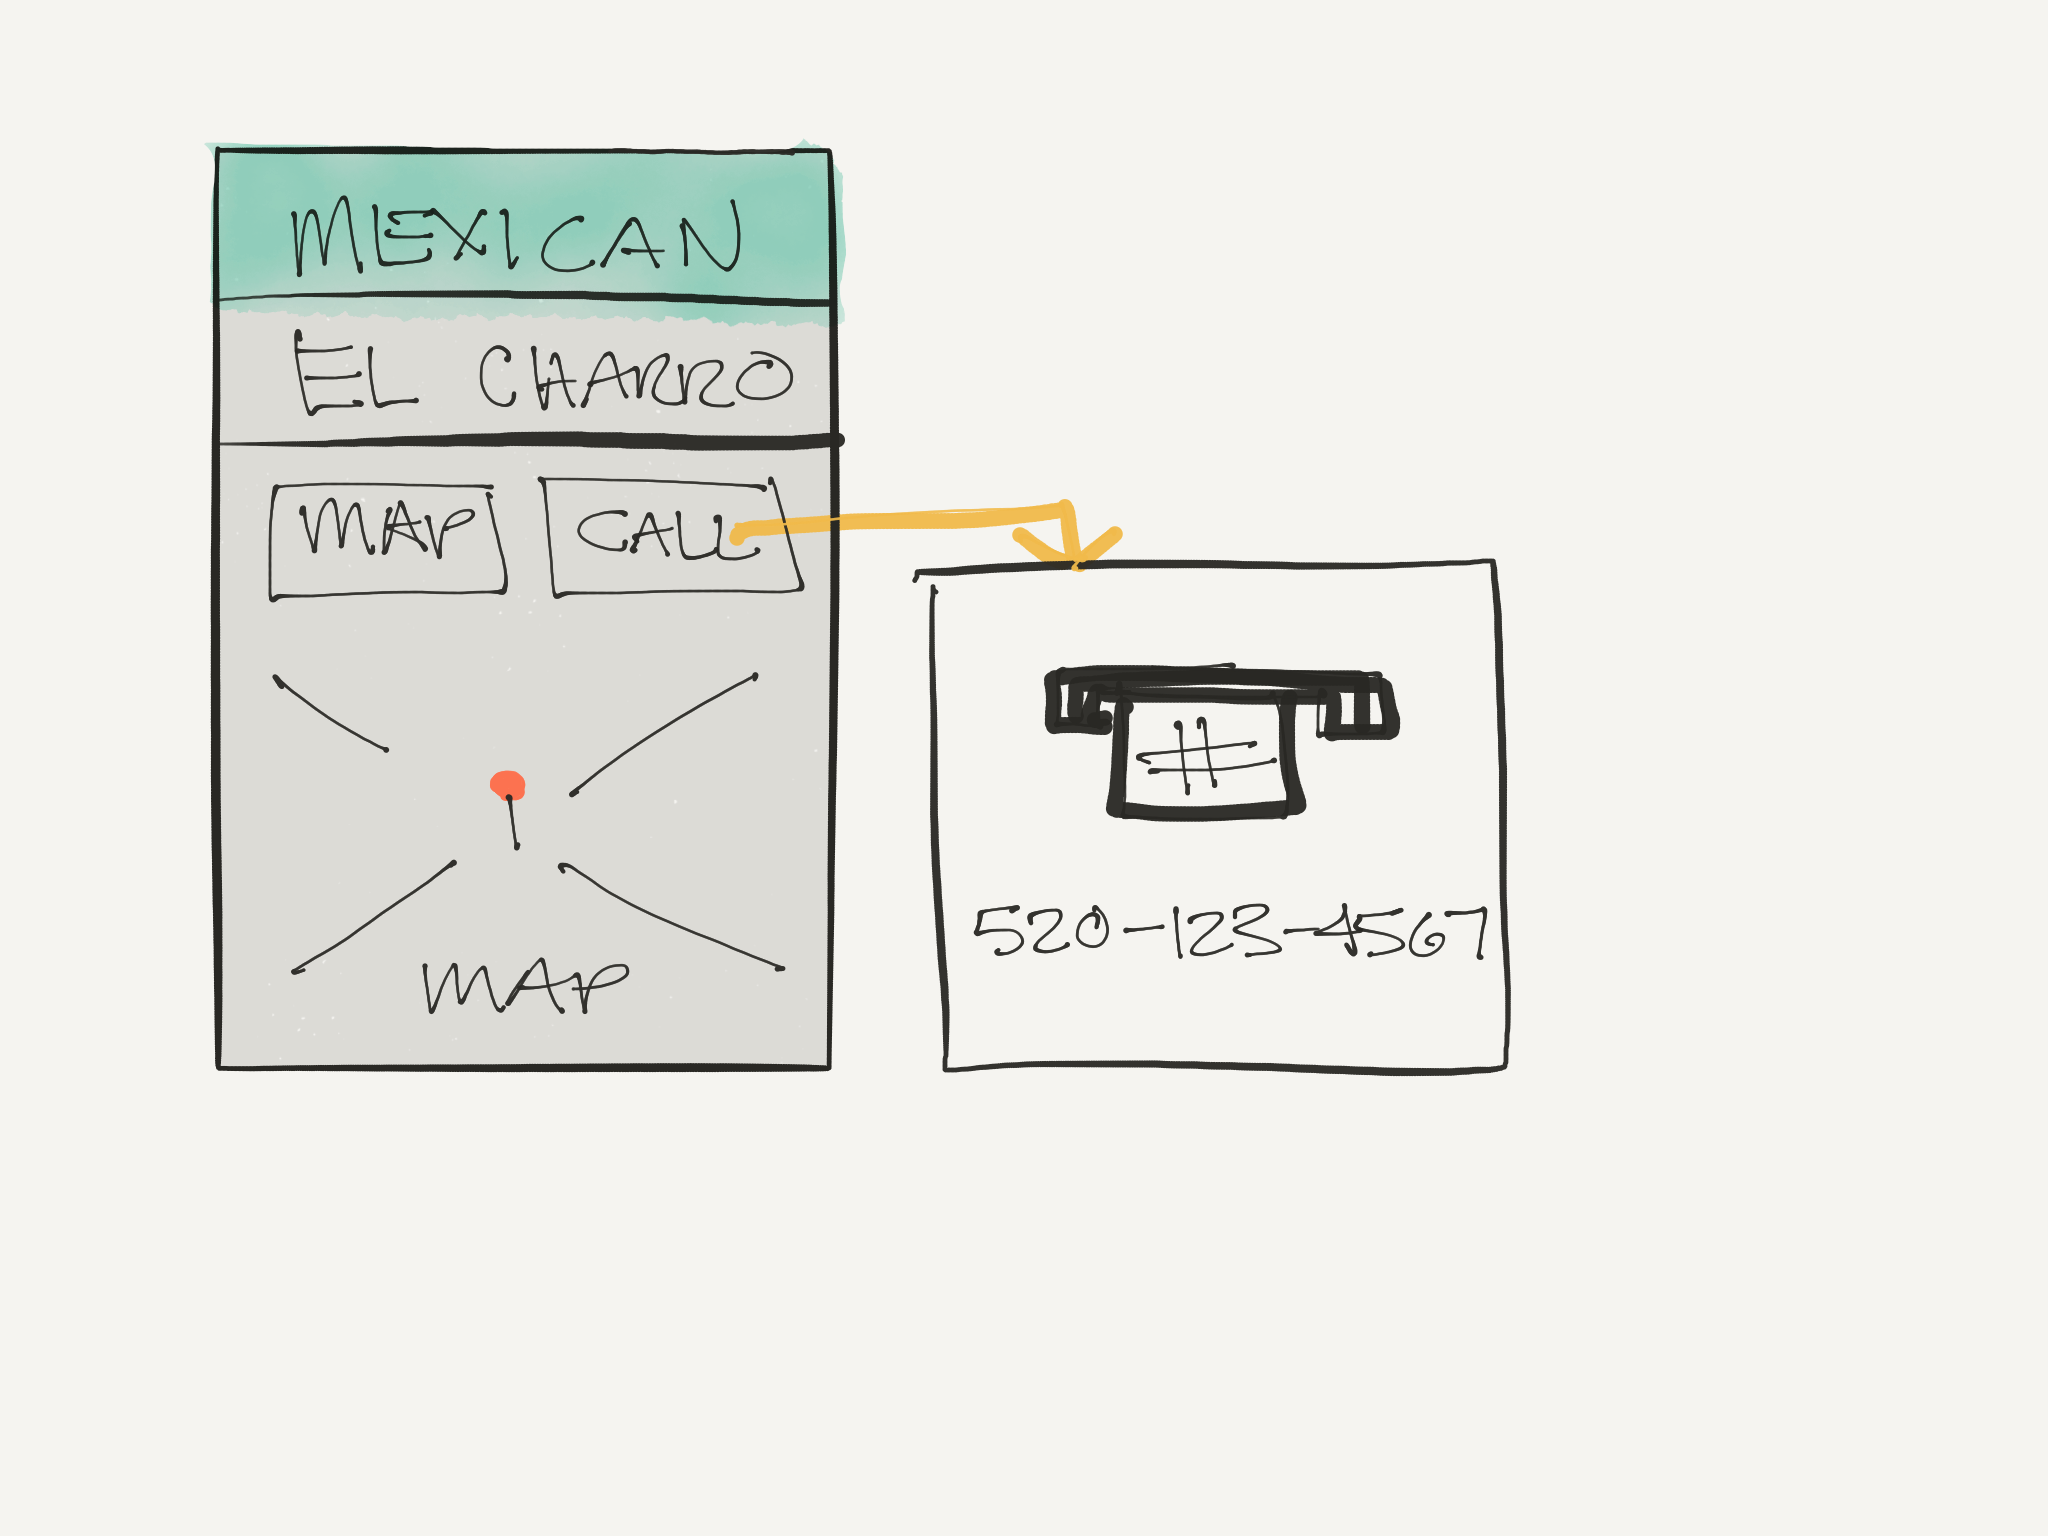 MEXICAN
EL CHARRO
MAP CALL
MAP
#
520-123-4567